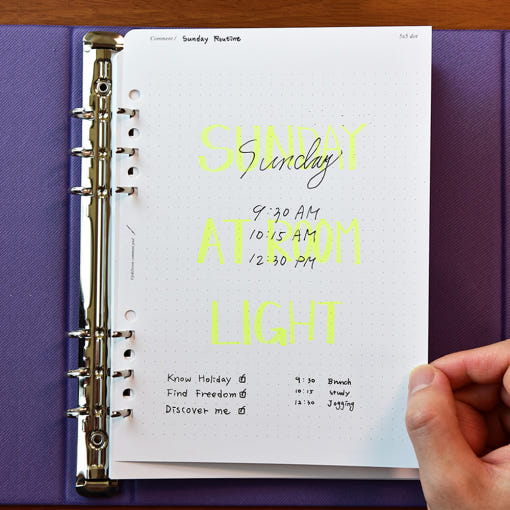 Comment / Sunday Routine
5x5 dot
SUNDAY
Sunday
9:30 AM
AT ROOM
10:15 AM
12:30 PM
LIGHT
Know Holiday ☑ 9:30 Brunch
Find Freedom ☑ 10:15 Study
Discover me ☑ 12:30 Jogging